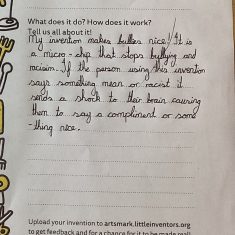 What does it do? How does it work?
Tell us all about it!
My invention makes bullies nice! It is
a micro-chip that stops bullying and
racism. If the person using this invention
says something mean or racist it
sends a shock to their brain causing
them to say a compliment or some
-thing nice.
Upload your invention to artsmark.littleinventors.org
to get feedback and for a chance for it to be made real!